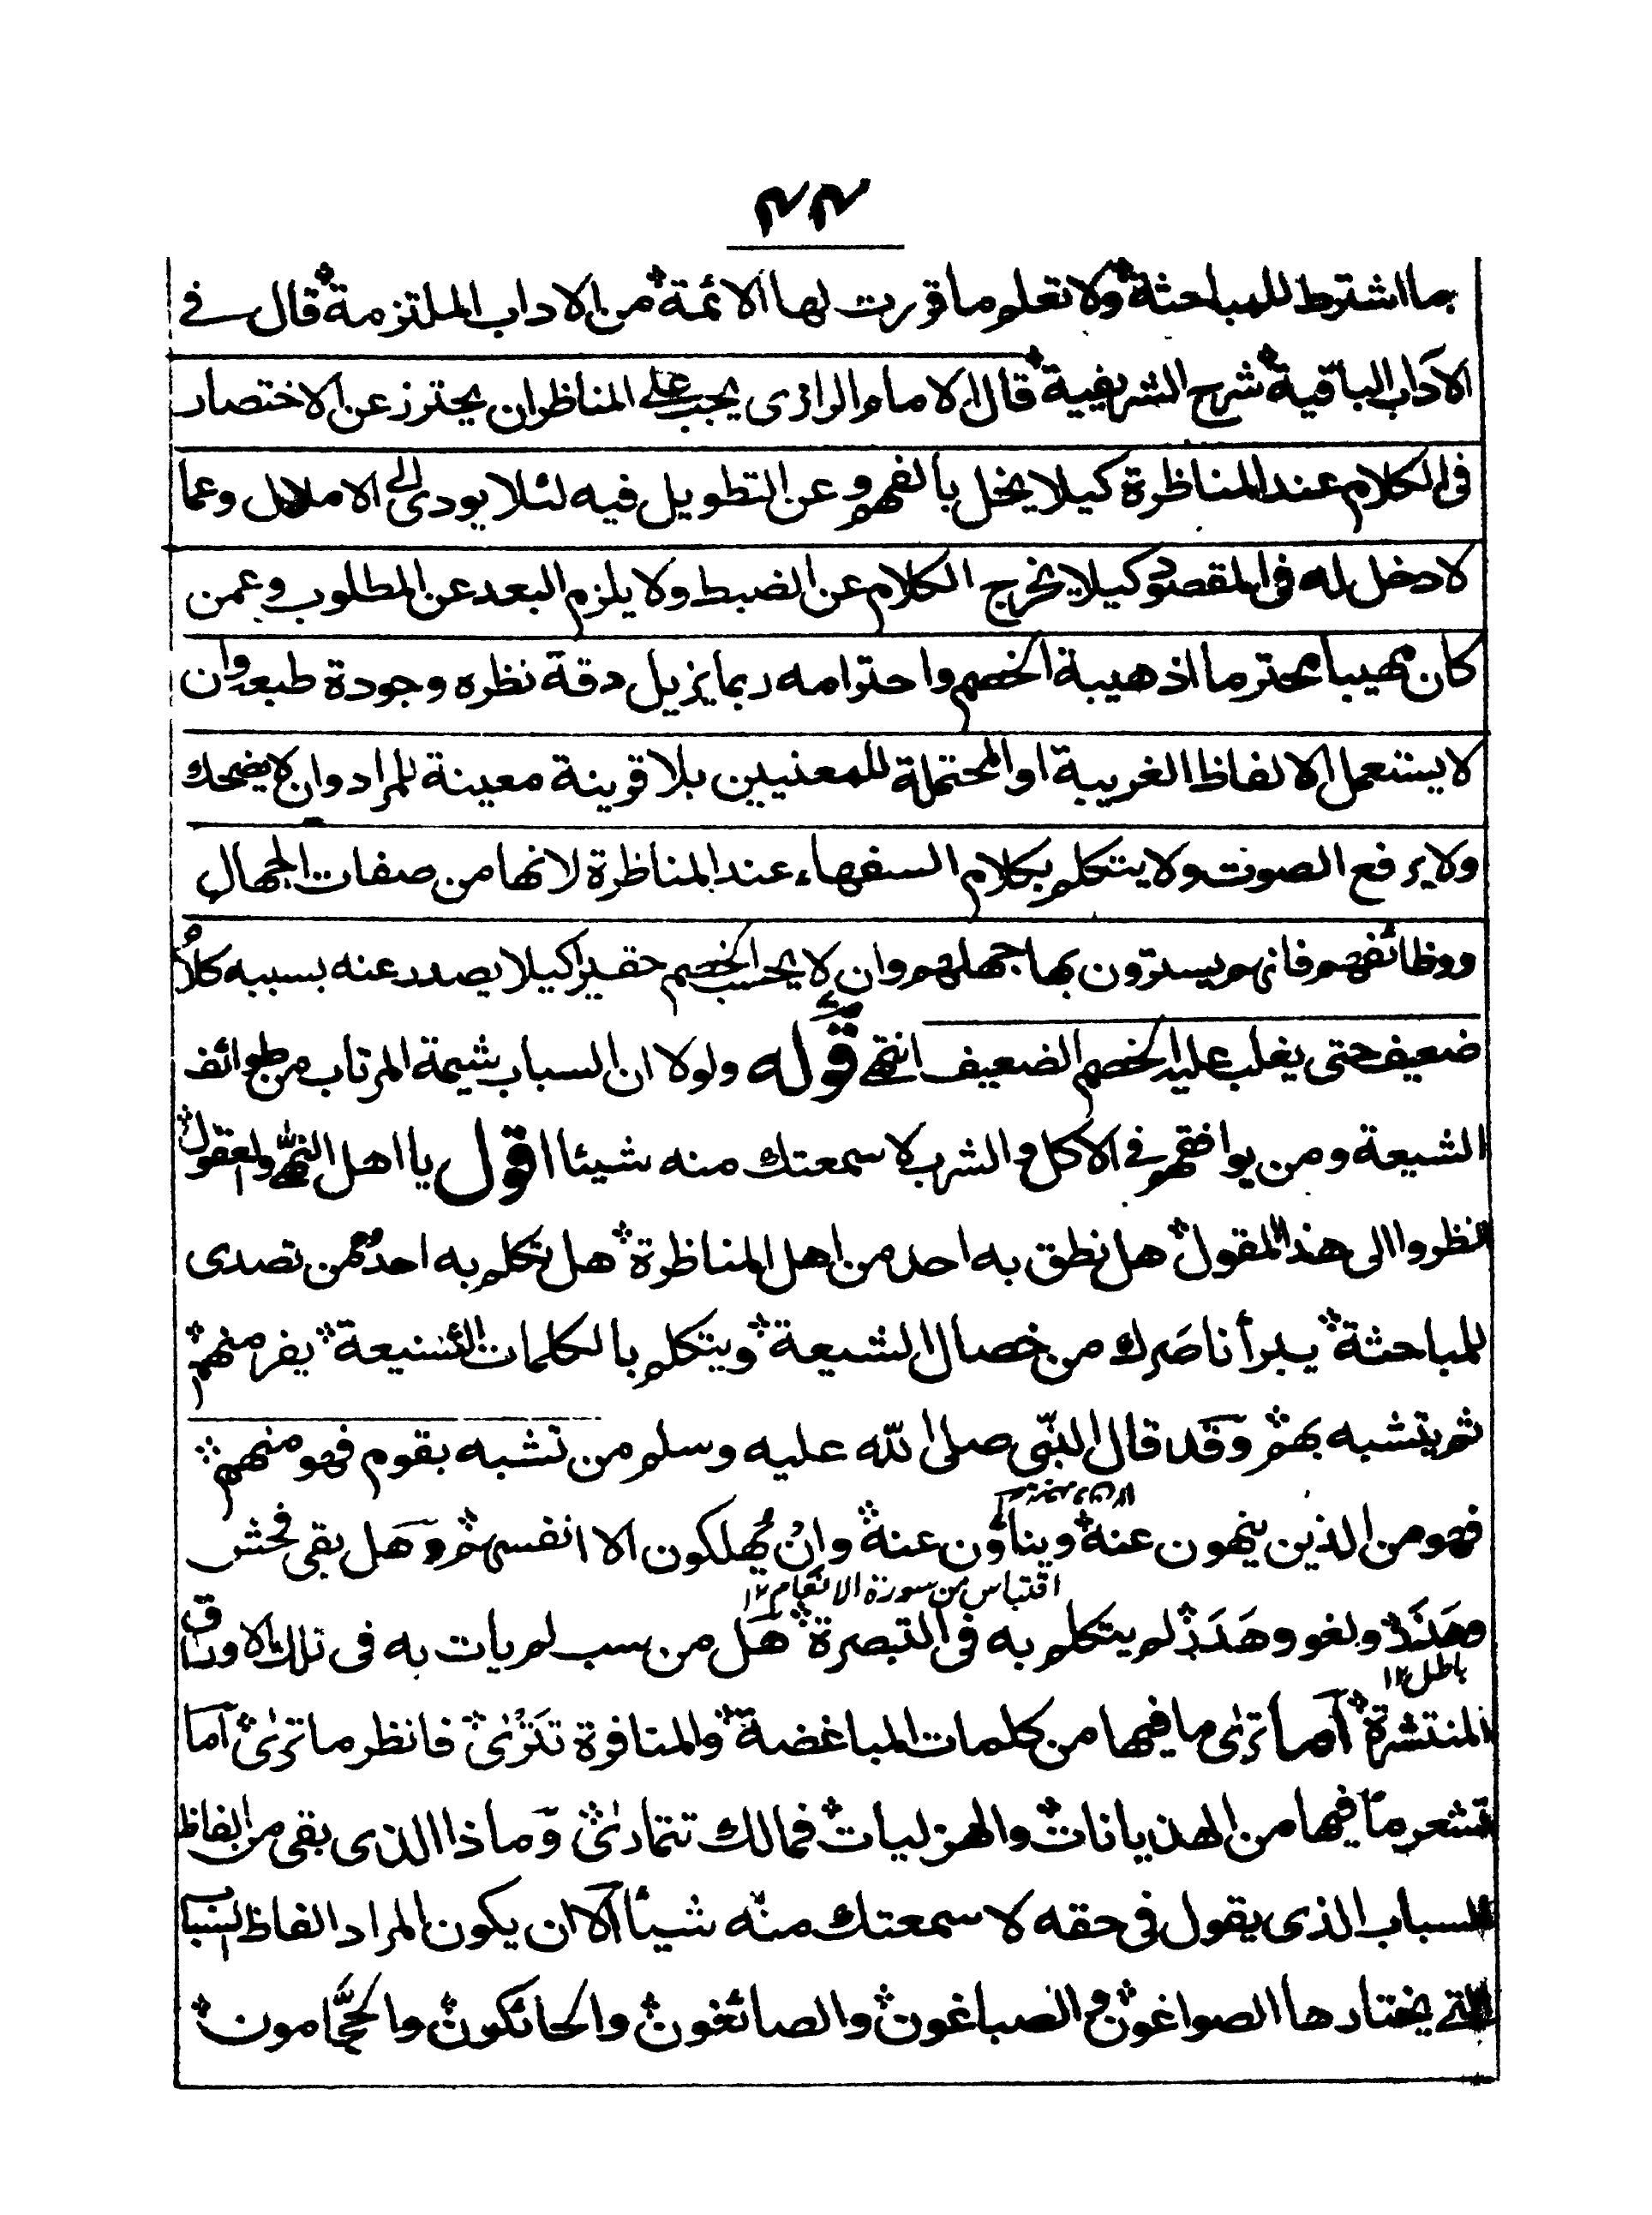 ۴۴
بما اشترط للمباحثة ولا تعلم ما قررت لها الائمة من الاداب الملتزمة قال فے
الآداب الباقية شرح الشريفية قال الامام الرازى يجب على المناظر ان يحترز عن الاختصار
فى الكلام عند المناظرة كيلا يخل بالفهم و عن التطويل فيه لئلا يودى الى الاملال وعما
لا دخل له فى المقصود كيلا يخرج الكلام عن الضبط ولا يلزم البعد عن المطلوب وعمن
كان مهيبا محترما اذ هيبة الخصم واحترامه ربما يزيل دقة نظره وجودة طبعه وان
لا يستعمل الالفاظ الغريبة او المحتملة للمعنيين بلا قرينة معينة للمراد وان لا يضحك
ولا يرفع الصوت ولا يتكلم بكلام السفهاء عند المناظرة لانها من صفات الجهال
ووظائفهم فانهم يسترون بها جهلهم وان لا يحسب الخصم حقيرا كيلا يصدر عنه بسببه كلامٌ
ضعيف حتى يغلب عليه الخصم الضعيف انتهى قوله ولولا ان السباب شيمة المرتاب من طوائف
الشيعة ومن يوافقهم فى الاكل والشرب لا سمعتك منه شيئا اقول يا اهل النهى والعقول
انظروا الى هذا المقول هل نطق به احد من اهل المناظرة هل تكلم به احد ممن تصدى
للمباحثة يبرأ ناصرك من خصال الشيعة ويتكلم بالكلمات الشنيعة يفر منهم
ثم يتشبه بهم وقد قال النبى صلى الله عليه وسلم من تشبه بقوم فهو منهم
فهو من الذين ينهون عنه وينأون عنه وان يُهلكون الا انفسهم وهل بقى فحش
اقتباس من سورة الانعام ١٢
وهَذَذ ولغو وهَدَذ لم يتكلم به فى التبصرة هل من سب لم يات به فى تلك الاوراق
باطل ١٢
المنتشرة اما ترى ما فيها من كلمات المباغضة والمنافرة تَتْرىٰ فانظر ما ترىٰ اما
تشعر ما فيها من الهذيانات والهزليات فمالك تتمادىٰ وماذا الذى بقى من الفاظ
السباب الذى يقول فى حقه لا سمعتك منه شيأ الا ان يكون المراد الفاظ السباب
التى يختارها الصواغون والصباغون والصائغون والحائكون والحجّامون